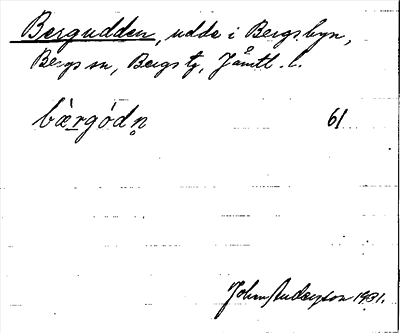 Bergudden, udde i Bergsbyn,
Bergs sn, Bergs tg, Jämtl. l.
bærgódn̥ 61
John Anderzson 1931.